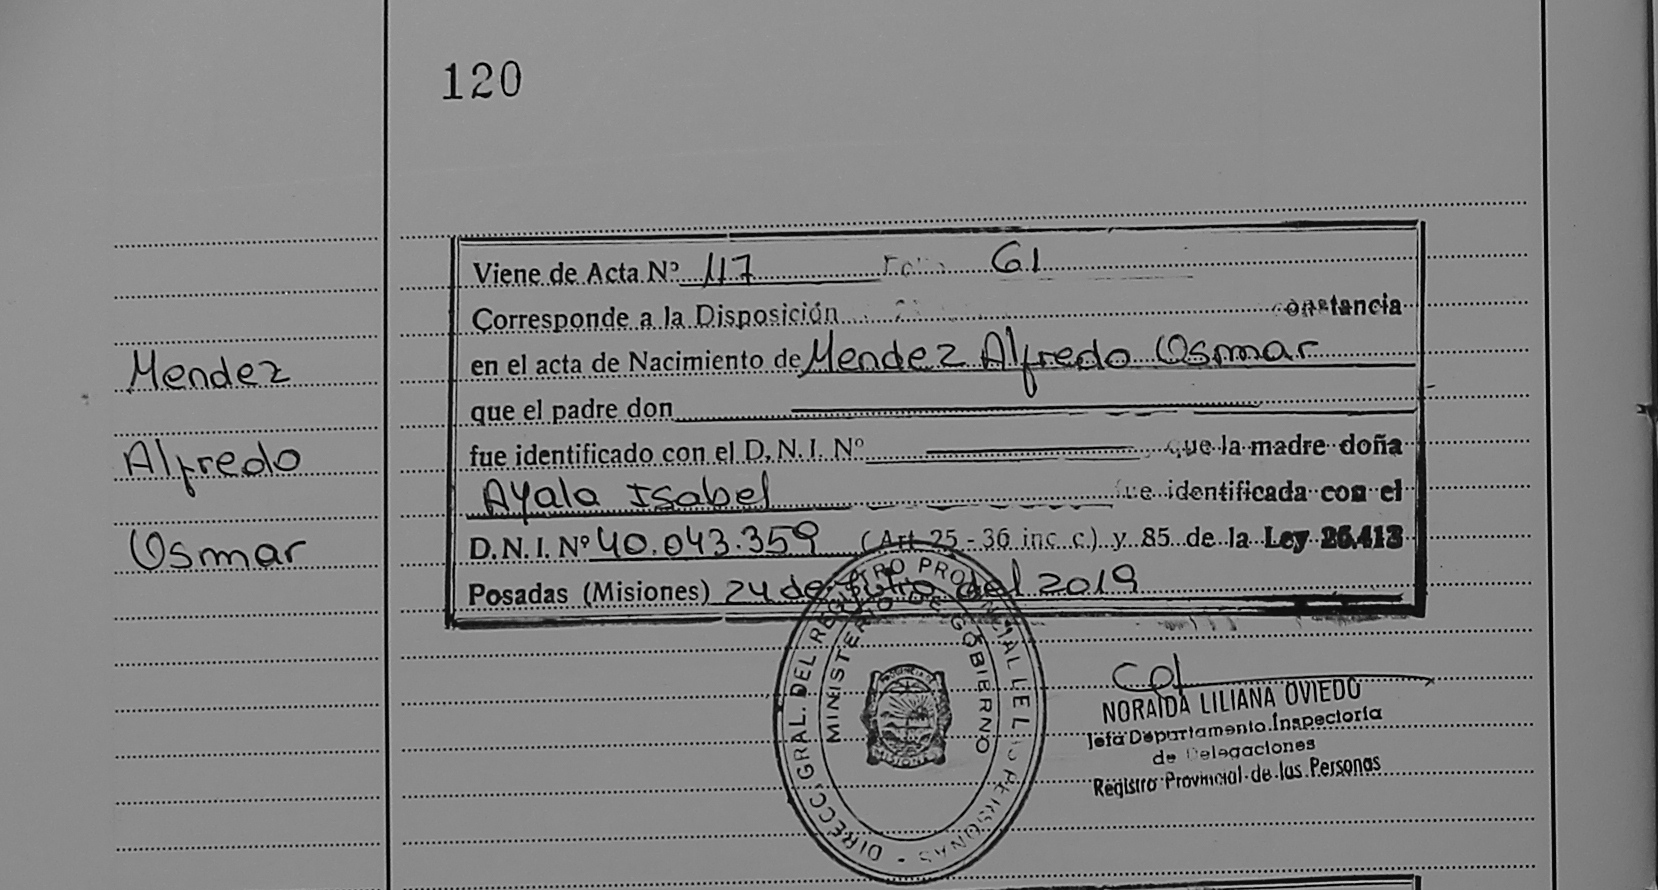 120
Viene de Acta Nº 117 Folio 61
Corresponde a la Disposición constancia
en el acta de Nacimiento de Mendez Alfredo Osmar
que el padre don
fue identificado con el D.N.I. Nº que la madre doña
Ayala Isabel fue identificada con el
D.N.I. Nº 40.043.359 (Art. 25 - 36 inc. c) y 85 de la Ley 26.413
Posadas (Misiones) 24 de del 2019
Mendez
Alfredo
Osmar
DIRECC. GRAL. DEL REGISTRO PROVINCIAL DE LAS PERSONAS
MINISTERIO DE GOBIERNO
MISIONES
NORAIDA LILIANA OVIEDO
Jefa Departamento Inspectoría
de Delegaciones
Registro Provincial de las Personas